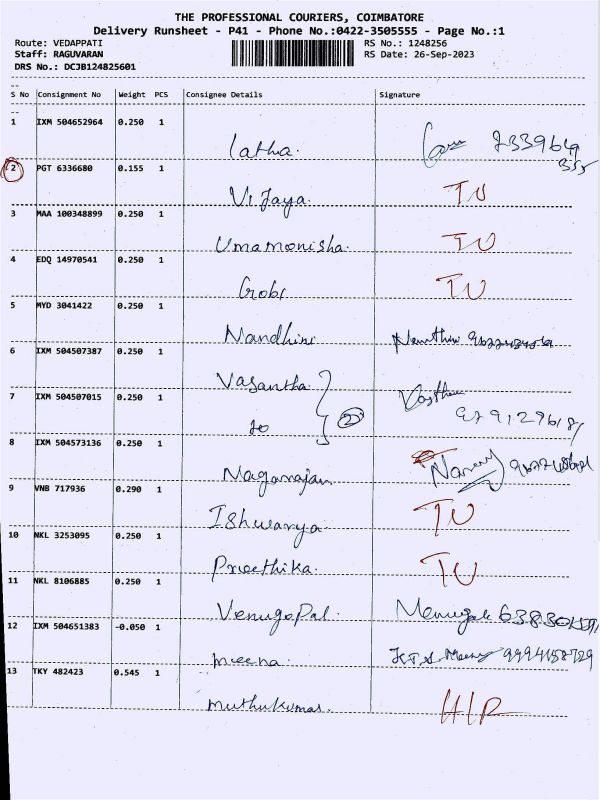 THE PROFESSIONAL COURIERS, COIMBATORE
Delivery Runsheet - P41 - Phone No.:0422-3505555 - Page No.:1
Route: VEDAPPATI RS No.: 1248256
Staff: RAGUVARAN RS Date: 26-Sep-2023
DRS No.: DCJB124825601
S No Consignment No Weight PCS Consignee Details Signature
1 IXM 504652964 0.250 1
latha. 7339649
355
2 PGT 6336680 0.155 1
Vijaya. TU
3 MAA 100348899 0.250 1
Umamonisha. TU
4 EDQ 14970541 0.250 1
Gobi TU
5 MYD 3041422 0.250 1
Nandhini
6 IXM 504507387 0.250 1
Vasantha
7 IXM 504507015 0.250 1
to 2
8 IXM 504573136 0.250 1
Nagarajan
9 VNB 717936 0.290 1
Ishwarya TU
10 NKL 3253095 0.250 1
Preethika. TU
11 NKL 8106885 0.250 1
Venugopal.
12 IXM 504651383 -0.050 1
meena. 9994158729
13 TKY 482423 0.545 1
muthukumar.